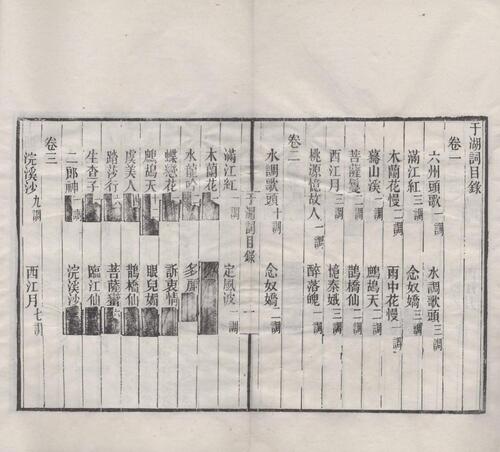 于湖詞目錄
卷一
六州頭歌一調　水調歌頭三調
滿江紅三調　念奴嬌三調
木蘭花慢二調　雨中花慢一調
驀山溪二調　鷓鴣天二調
菩薩蠻二調　鵲橋仙二調
西江月三調　憶秦娥三調
桃源憶故人一調　醉落魄一調
卷二
水調歌頭十調　念奴嬌二調
于湖詞目錄　一
滿江紅一調　定風波一調
木蘭花
水龍吟　多麗
蝶戀花　訴衷情
鷓鴣天　眼兒媚
虞美人　鵲橋仙
踏莎行　菩薩蠻
生查子　臨江仙
二郎神　浣溪沙
卷三
浣溪沙九調　西江月七調